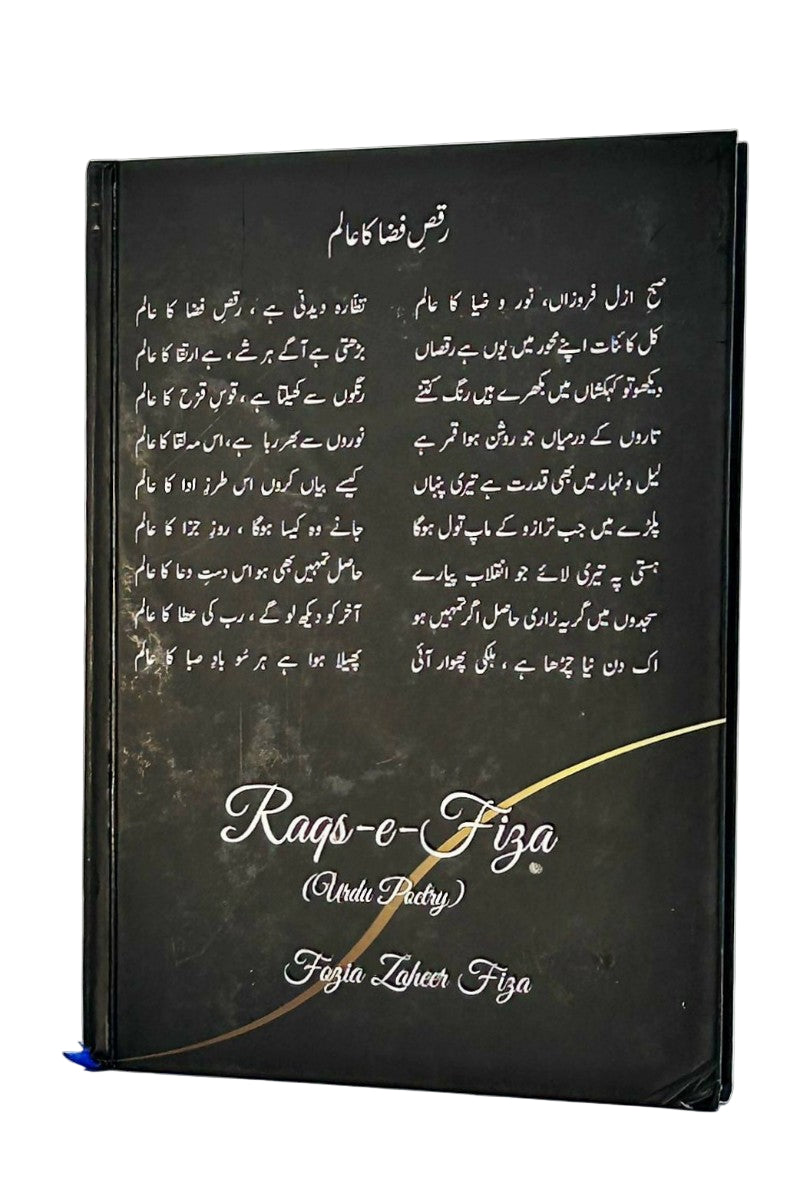 رقصِ فضا کا عالم
صبحِ ازل فروزاں، نور و ضیا کا عالم نظّارہ دیدنی ہے ، رقصِ فضا کا عالم
کل کائنات اپنے محور میں یوں ہے رقصاں بڑھتی ہے آگے ہر شے ، ہے ارتقا کا عالم
دیکھو تو کہکشاں میں بکھرے ہیں رنگ کتنے رنگوں سے کھیلتا ہے ، قوسِ قزح کا عالم
تاروں کے درمیاں جو روشن ہوا قمر ہے نوروں سے بھر رہا ہے، اس مہ لقا کا عالم
لیل و نہار میں بھی قدرت ہے تیری پنہاں کیسے بیاں کروں اس طرزِ ادا کا عالم
پلڑے میں جب ترازو کے ماپ تول ہوگا جانے وہ کیسا ہوگا ، روزِ جزا کا عالم
ہستی پہ تیری لائے جو انقلاب پیارے حاصل تمہیں بھی ہو اس دستِ دعا کا عالم
سجدوں میں گریہ زاری حاصل اگر تمہیں ہو آخر کو دیکھ لو گے ، رب کی عطا کا عالم
اک دن نیا چڑھا ہے ، ہلکی پھوار آئی پھیلا ہوا ہے ہر سُو بادِ صبا کا عالم
Raqs-e-Fiza
(Urdu Poetry)
Fozia Zaheer Fiza